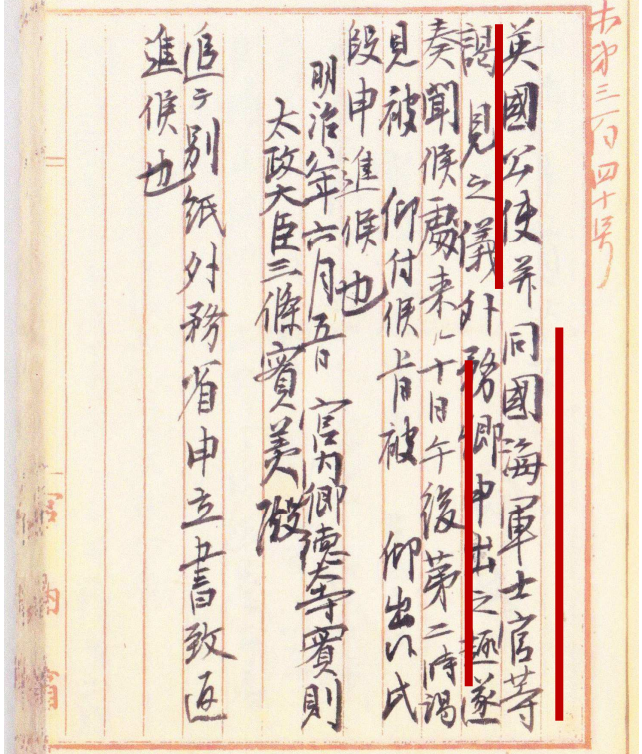 未第三百四十号
英國公使并同國海軍士官等
謁見之儀外務卿申出之趣遂
奏聞候處来ル十日午後第二時謁
見被 仰付候旨被 仰出候此
段申進候也
明治八年六月五日 宮内卿徳大寺實則
太政大臣三條實美殿
追テ別紙外務省申立書致返
進候也
宮内省